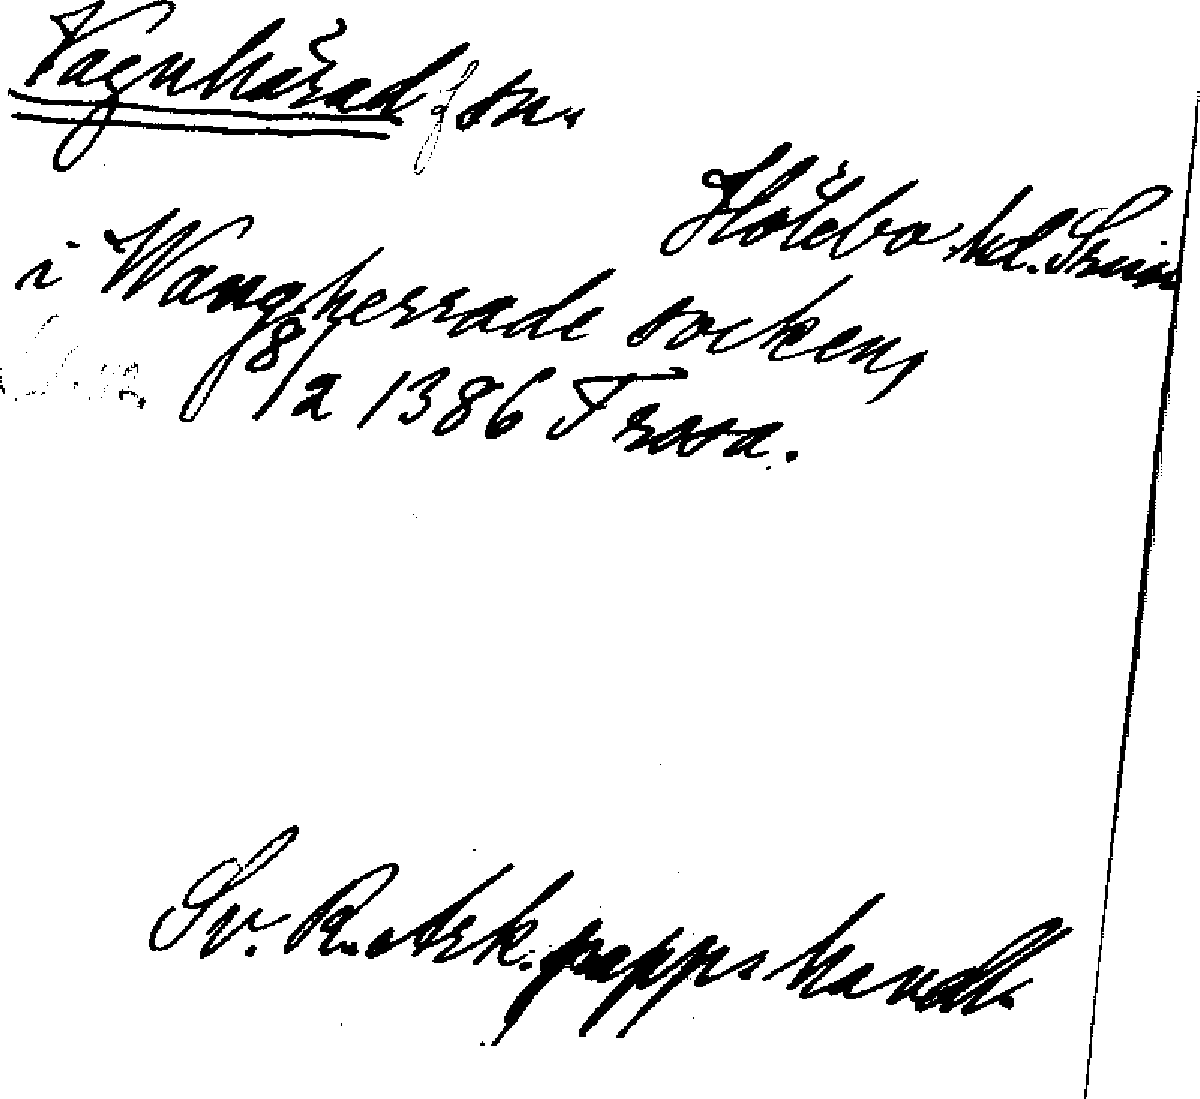 Vagnhärad sn.
Hölebo hd. Srm
i Wangherrade socken,
8/2 1386 Trosa.
Sv. R. ark. papp. handl.